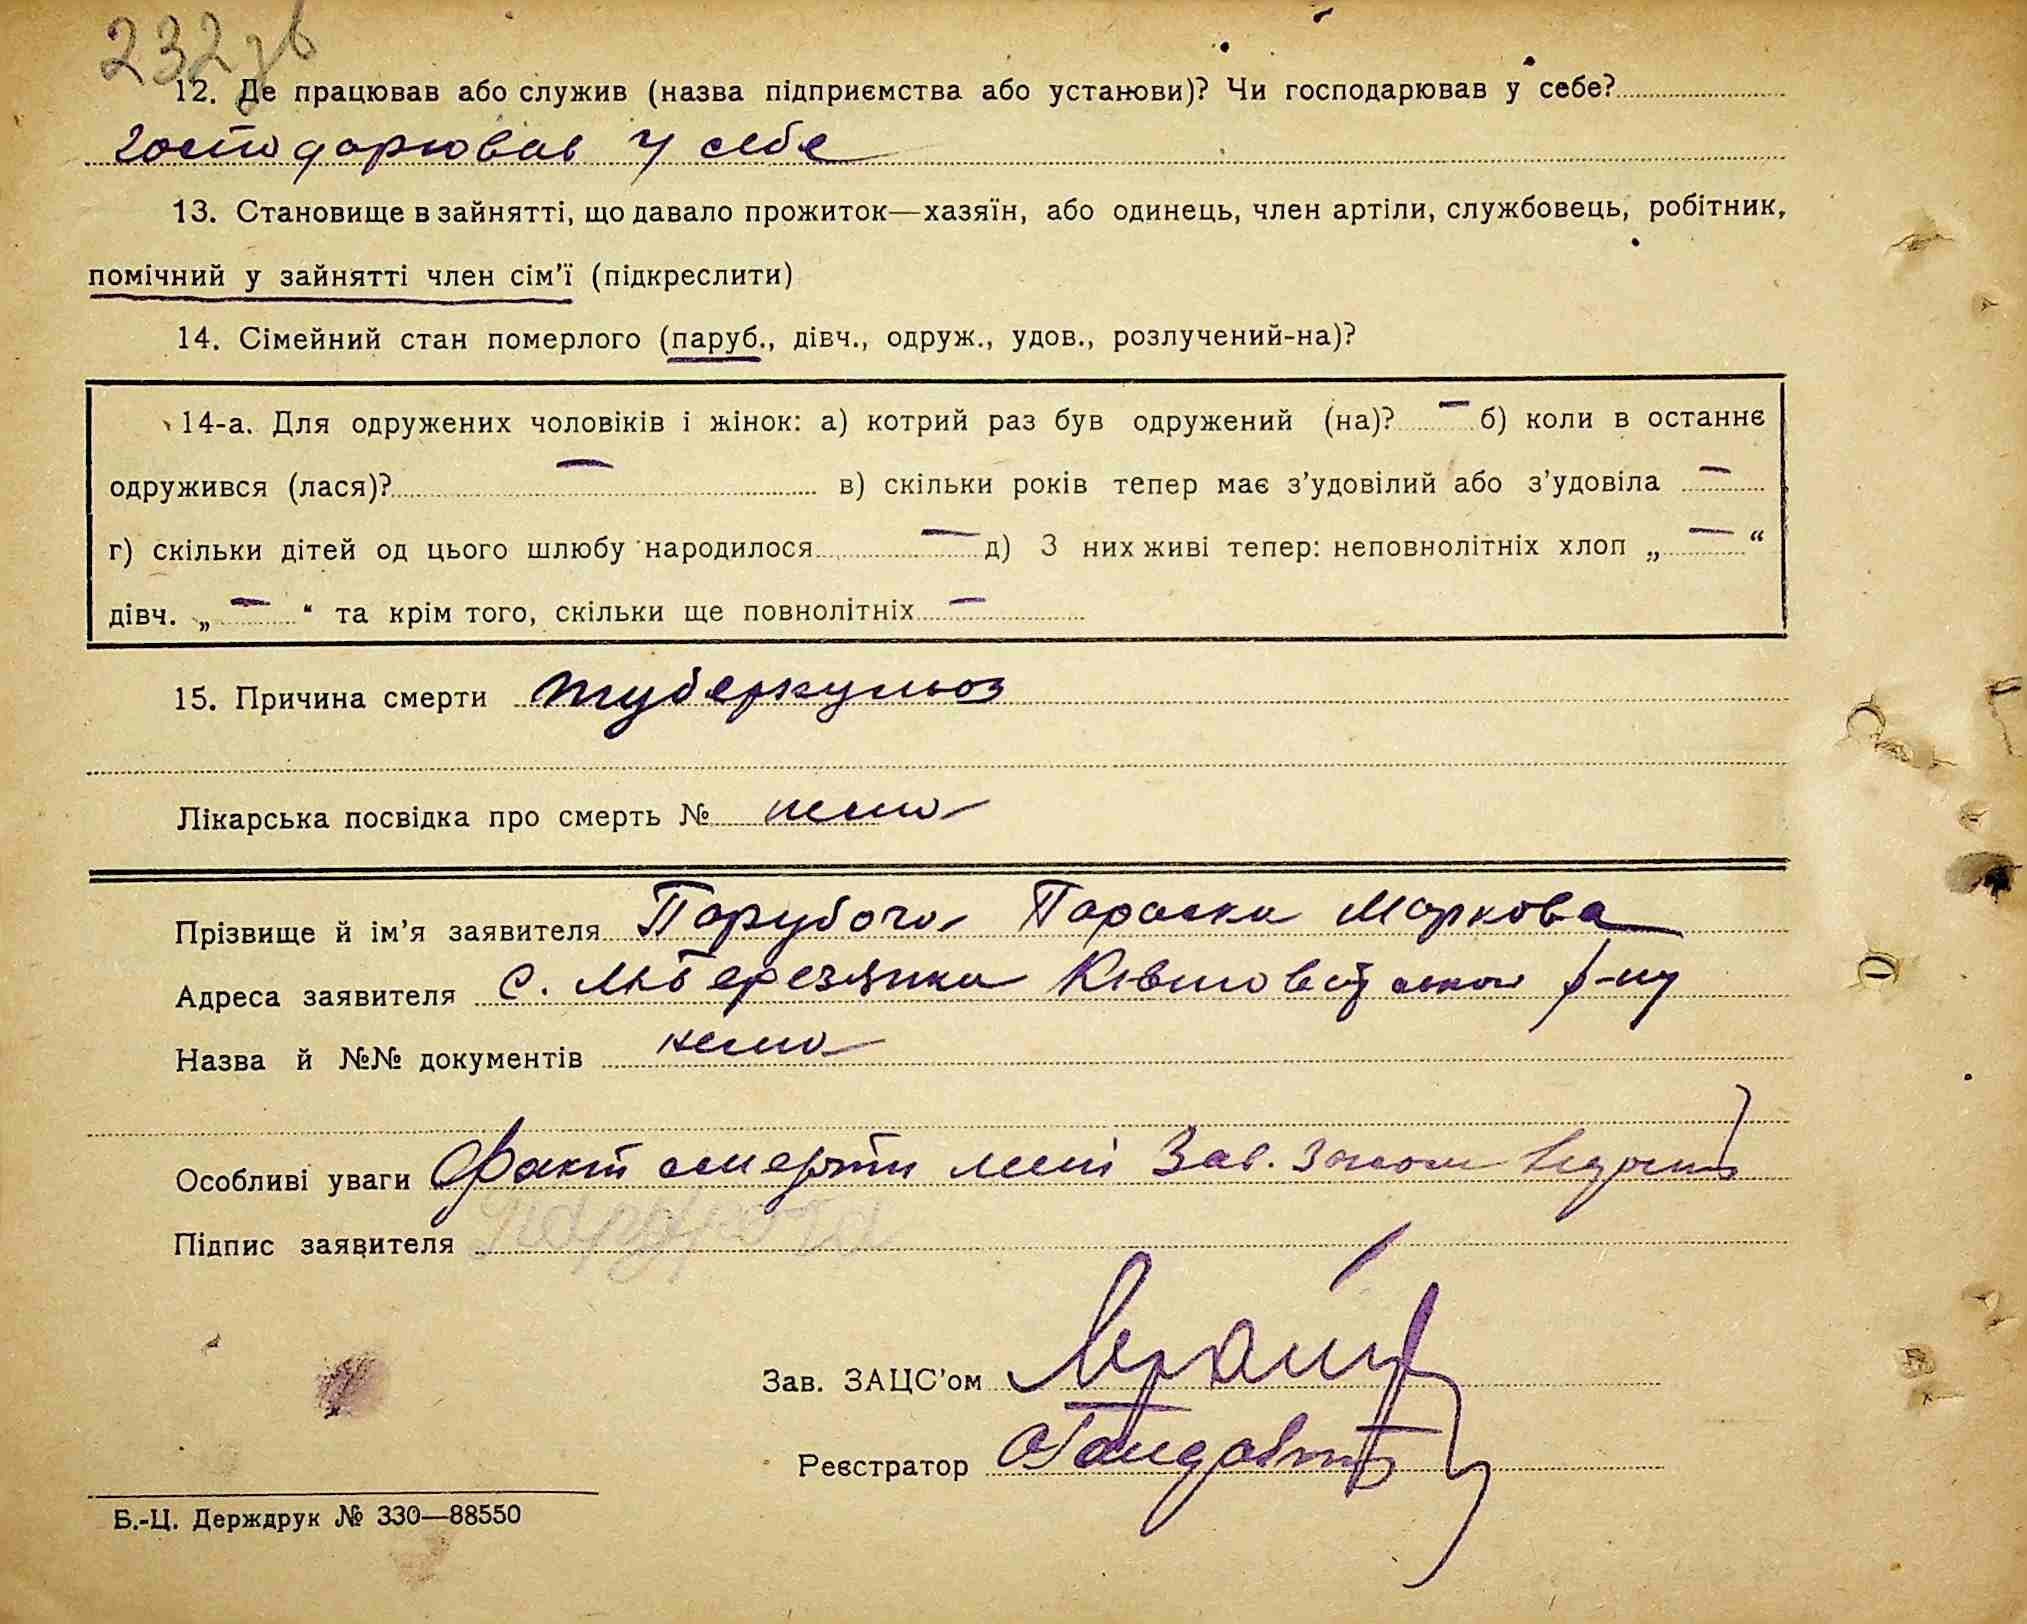 232зв
12. Де працював або служив (назва підприємства або установи)? Чи господарював у себе?
господарював у себе
13. Становище в зайнятті, що давало прожиток—хазяїн, або одинець, член артіли, службовець, робітник,
помічний у зайнятті член сім’ї (підкреслити)
14. Сімейний стан померлого (паруб., дівч., одруж., удов., розлучений-на)?
14-а. Для одружених чоловіків і жінок: а) котрий раз був одружений (на)? — б) коли в останнє
одружився (лася)? — в) скільки років тепер має з’удовілий або з’удовіла —
г) скільки дітей од цього шлюбу народилося — д) З них живі тепер: неповнолітніх хлоп „ — “
дівч. „ — “ та крім того, скільки ще повнолітніх —
15. Причина смерти туберкульоз
Лікарська посвідка про смерть № нема
Прізвище й ім’я заявителя Парубоча Параска Маркова
Адреса заявителя с. М-Березянка р-ну
Назва й №№ документів нема
Особливі уваги Факт смерти мені Зав. Загсом
Підпис заявителя Парубоча
Зав. ЗАЦС’ом
Реєстратор
Б.-Ц. Держдрук № 330—88550